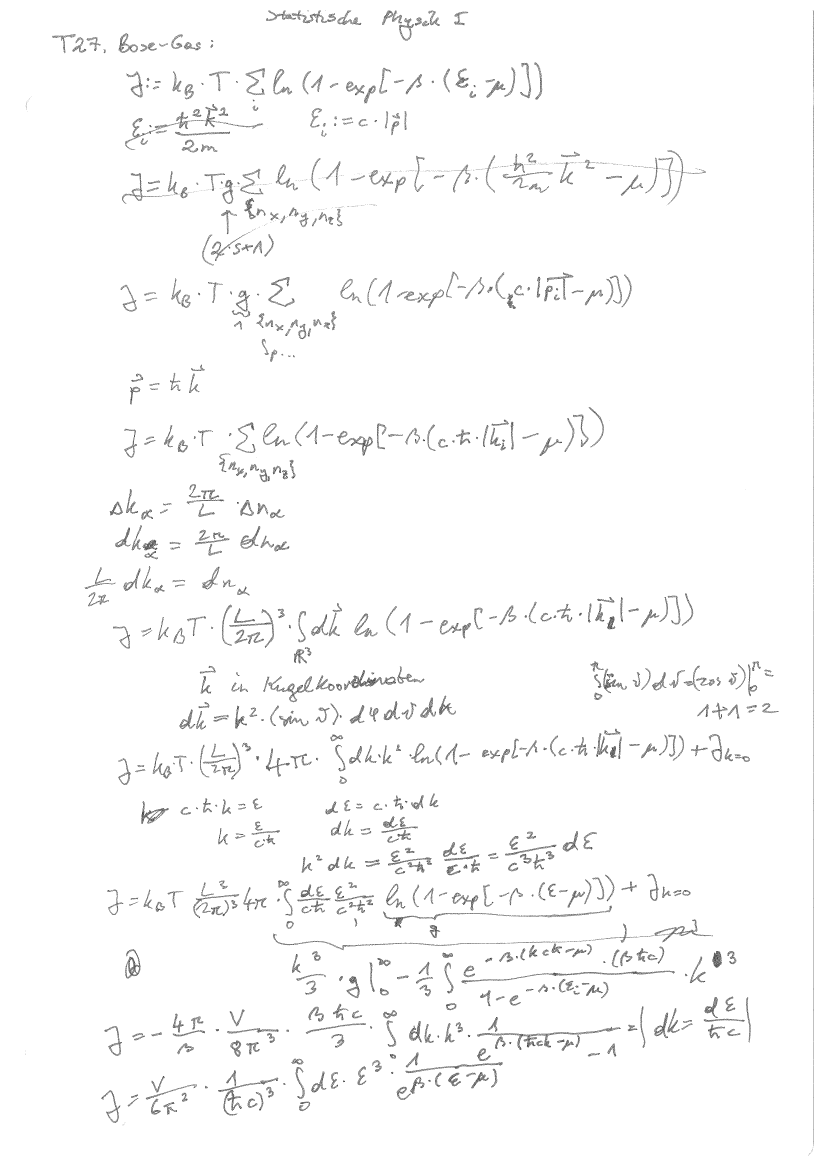 Statistische Physik I
T27. Bose-Gas:
J := k_B · T · Σ_i ln (1 - exp[-β · (ε_i - μ)])
ε_i := ħ² k⃗² / 2m    ε_i := c · |p⃗|
J = k_B · T · g · Σ_{n_x, n_y, n_z} ln (1 - exp[-β · (ħ²/2m k⃗² - μ)])
↑
(2·s+1)
J = k_B · T · g · Σ_{n_x, n_y, n_z} ln (1 - exp[-β · (c · |p⃗_i| - μ)])
1
p⃗ = ħ k⃗
J = k_B · T · Σ_{n_x, n_y, n_z} ln (1 - exp[-β · (c · ħ · |k⃗_i| - μ)])
Δk_α = 2π/L · Δn_α
dk_α = 2π/L dn_α
L/2π dk_α = dn_α
J = k_B T · (L/2π)³ · ∫_{ℝ³} dk⃗ ln (1 - exp[-β · (c · ħ · |k⃗| - μ)])
k⃗ in Kugelkoordinaten
dk⃗ = k² · (sin ϑ) · dφ dϑ dk
∫_0^π (sin ϑ) dϑ = (cos ϑ)|_0^π =
1 + 1 = 2
J = k_B T · (L/2π)³ · 4 · π · ∫_0^∞ dk · k² · ln (1 - exp[-β · (c · ħ · |k⃗| - μ)]) + J_{k=0}
c · ħ · k = ε    dε = c · ħ · dk
k = ε/cħ    dk = dε/cħ
k² dk = ε²/c²ħ² dε/c·ħ = ε²/c³ħ³ dε
J = k_B T L³/(2π)³ 4π · ∫_0^∞ dε/cħ ε²/c²ħ² ln (1 - exp[-β · (ε - μ)]) + J_{k=0}
g
k³/3 · g|_0^∞ - 1/3 ∫_0^∞ e^{-β·(kcħ-μ)} · (βħc) / 1 - e^{-β·(ε_i-μ)} · k³
J = - 4π/β · V/8π³ · βħc/3 · ∫_0^∞ dk · k³ · 1/e^{β·(ħck-μ)} - 1 = | dk = dε/ħc |
J = V/6π² · 1/(ħc)³ · ∫_0^∞ dε · ε³ · 1/e^{β·(ε-μ)}